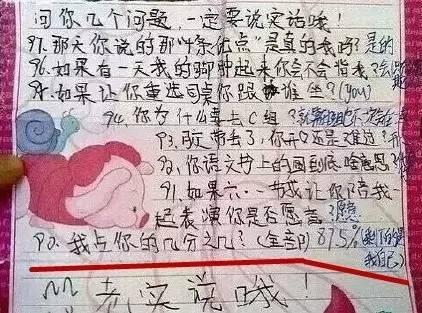 问你几个问题,一定要说实话哦!
97.那天你说的那"4条优点"是真的我吗?是的
96.如果有一天我的脚肿起来你会不会背我?会
95.如果让你重选同桌你跟谁坐?(you)
94.你为什么要上C组?
93.
92.你语文书上的画到底啥意思?
91.如果六·一节我让你陪我
起表演你是否愿意?愿意
90.我占你的几分之几?(全部)87.5%(剩下的是
我自己)
老实说哦!